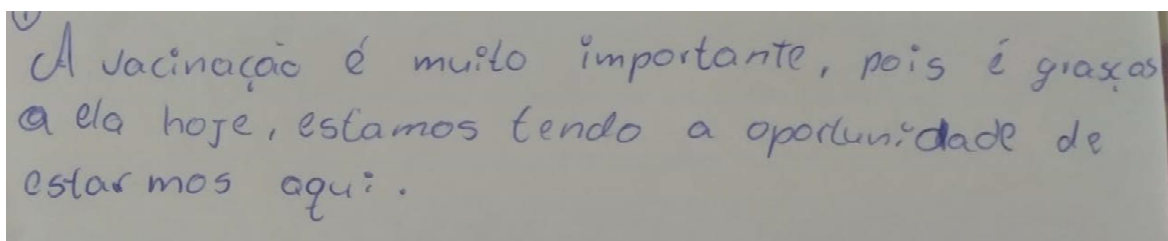 ①
A vacinação é muito importante, pois é grasças
a ela hoje, estamos tendo a oportunidade de
estar mos aqui.